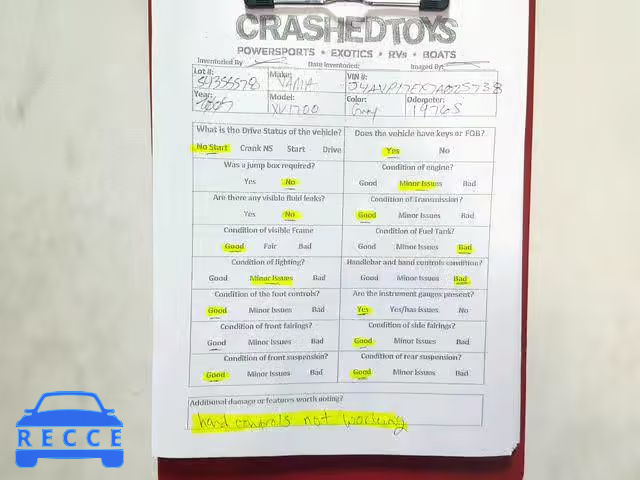 CRASHEDTOYS
POWERSPORTS • EXOTICS • RVs • BOATS
Inventoried By Date Inventoried: Imaged By:
Lot #: Make: VIN #:
54355578 YAMA JYAVP17EX7A025738
Year: Model: Color: Odometer:
2007 XV1700 Gray 19765
What is the Drive Status of the vehicle? Does the vehicle have keys or FOB?
No Start Crank NS Start Drive Yes No
Was a jump box required? Condition of engine?
Yes No Good Minor Issues Bad
Are there any visible fluid leaks? Condition of Transmission?
Yes No Good Minor Issues Bad
Condition of visible Frame Condition of Fuel Tank?
Good Fair Bad Good Minor Issues Bad
Condition of lighting? Handlebar and hand controls condition?
Good Minor Issues Bad Good Minor Issues Bad
Condition of the foot controls? Are the instrument gauges present?
Good Minor Issues Bad Yes Yes/has issues No
Condition of front fairings? Condition of side fairings?
Good Minor Issues Bad Good Minor Issues Bad
Condition of front suspension? Condition of rear suspension?
Good Minor Issues Bad Good Minor Issues Bad
Additional damage or features worth noting?
hand controls not working
RECCE